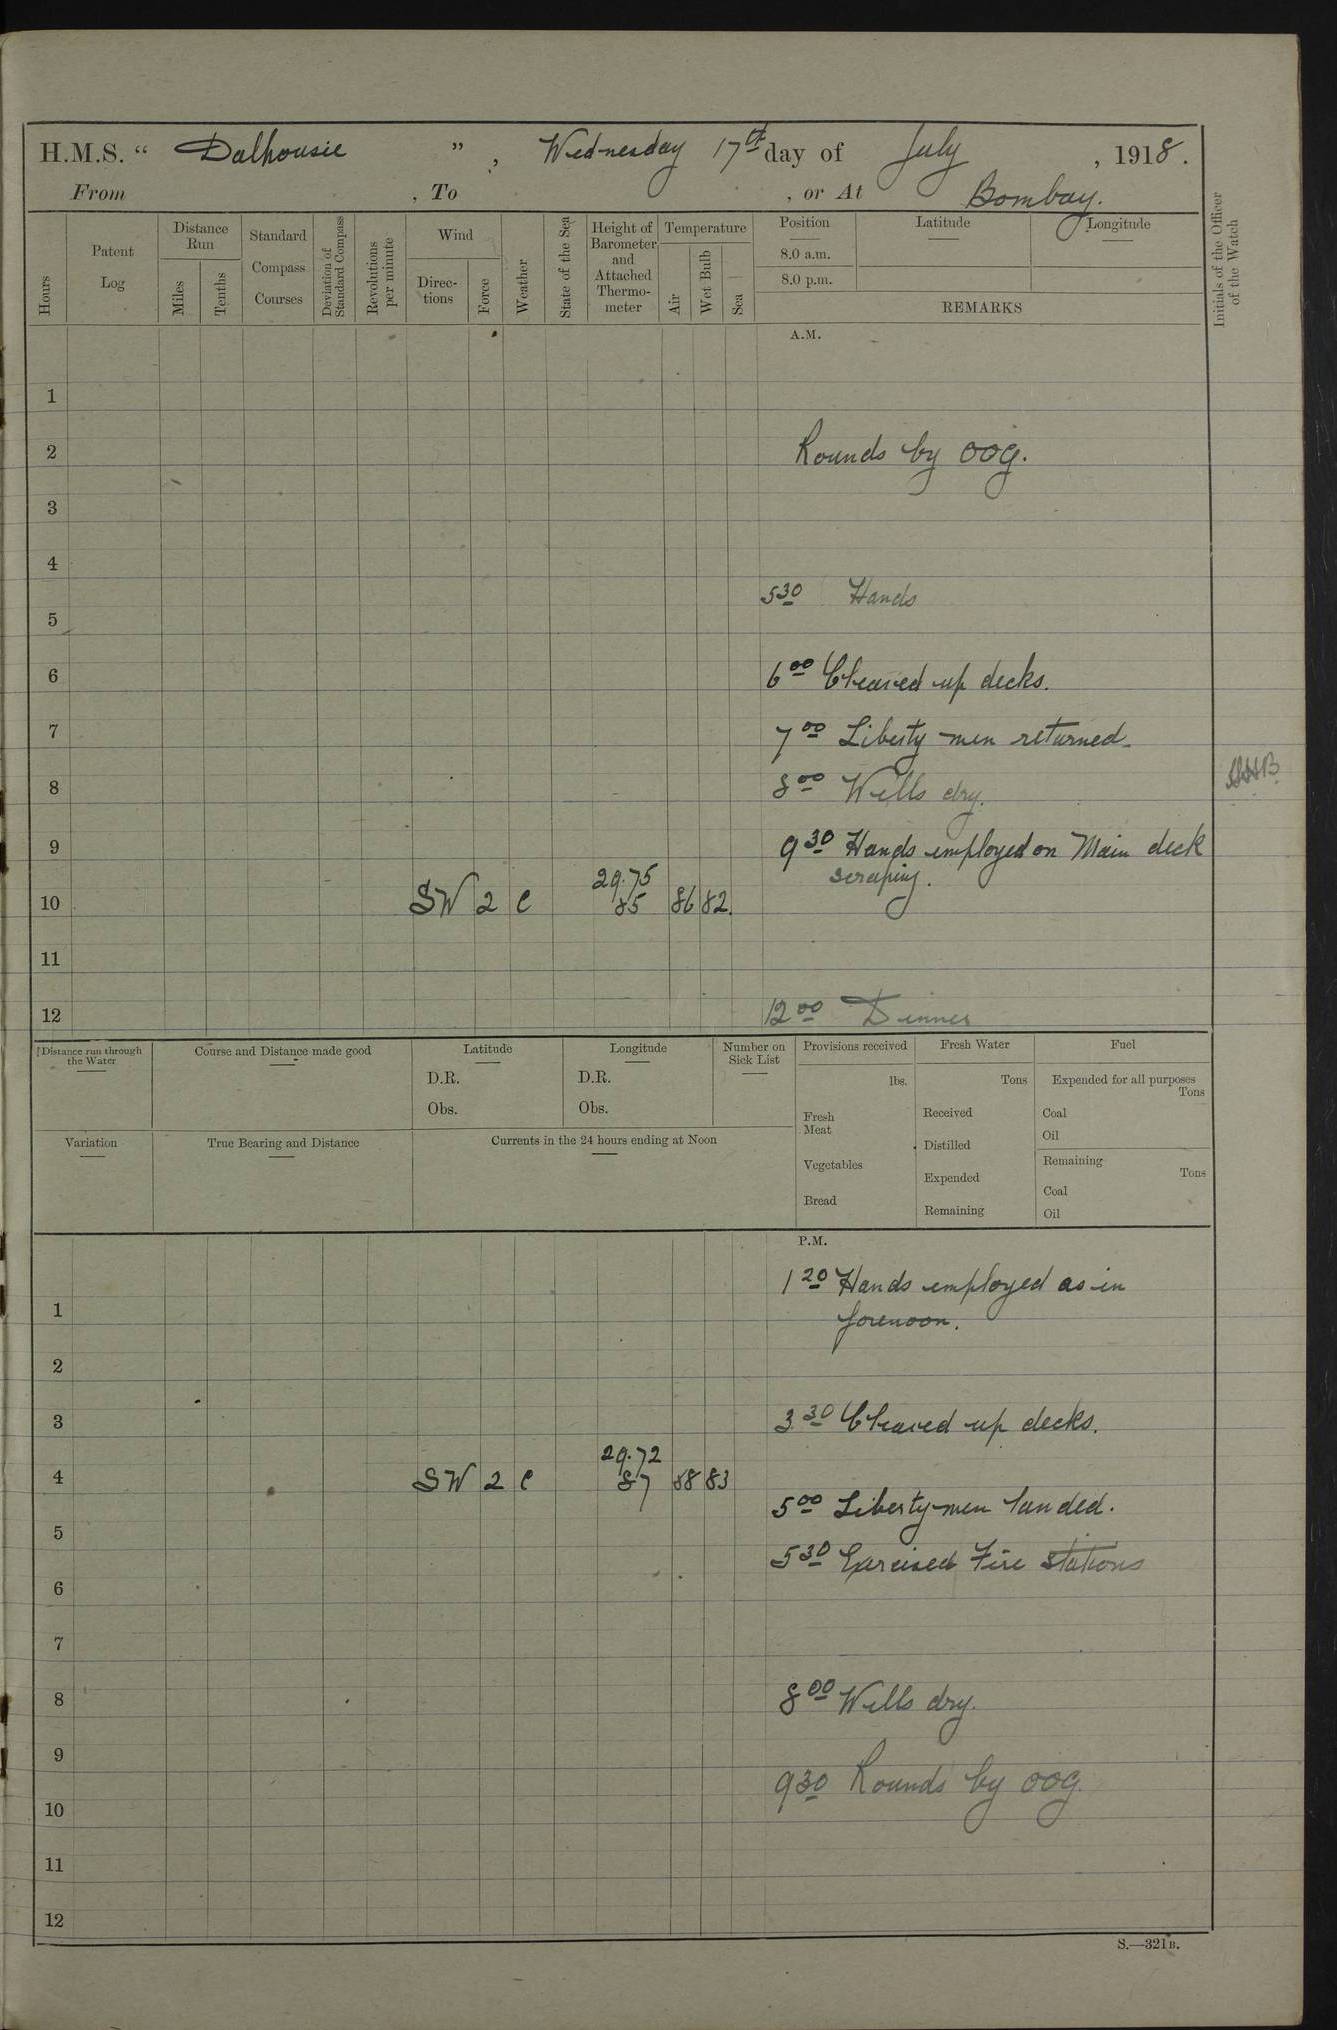 H.M.S. “ Dalhousie ”, Wednesday 17th day of July, 1918.
From , To , or At Bombay.
Hours
Patent Log
Distance Run
Miles
Tenths
Standard Compass Courses
Deviation of Standard Compass
Revolutions per minute
Wind
Directions
Force
Weather
State of the Sea
Height of Barometer and Attached Thermometer
Temperature
Air
Wet Bulb
Sea
Position
8.0 a.m.
8.0 p.m.
Latitude
Longitude
REMARKS
Initials of the Officer of the Watch
A.M.
1
2 Rounds by OOG.
3
4
5 30 Hands
5
6 6 00 Cleared up decks.
7 7 00 Liberty men returned.
8 8 00 Wells dry.
9 9 30 Hands employed on Main deck
scraping.
29.75
10 SW 2 c 85 86 82
11
12 12 00 Dinner
Distance run through the Water
Course and Distance made good
Latitude
D.R.
Obs.
Longitude
D.R.
Obs.
Number on Sick List
Provisions received
lbs.
Fresh Meat
Vegetables
Bread
Fresh Water
Tons
Received
Distilled
Expended
Remaining
Fuel
Expended for all purposes
Tons
Coal
Oil
Remaining
Tons
Coal
Oil
Variation
True Bearing and Distance
Currents in the 24 hours ending at Noon
P.M.
1 20 Hands employed as in
1 forenoon.
2
3 3 30 Cleared up decks.
29.72
4 SW 2 c 87 88 83
5 00 Liberty men landed.
5
5 30 Exercised Fire Stations
6
7
8 8 00 Wells dry.
9
9 30 Rounds by OOG.
10
11
12
S.—321B.